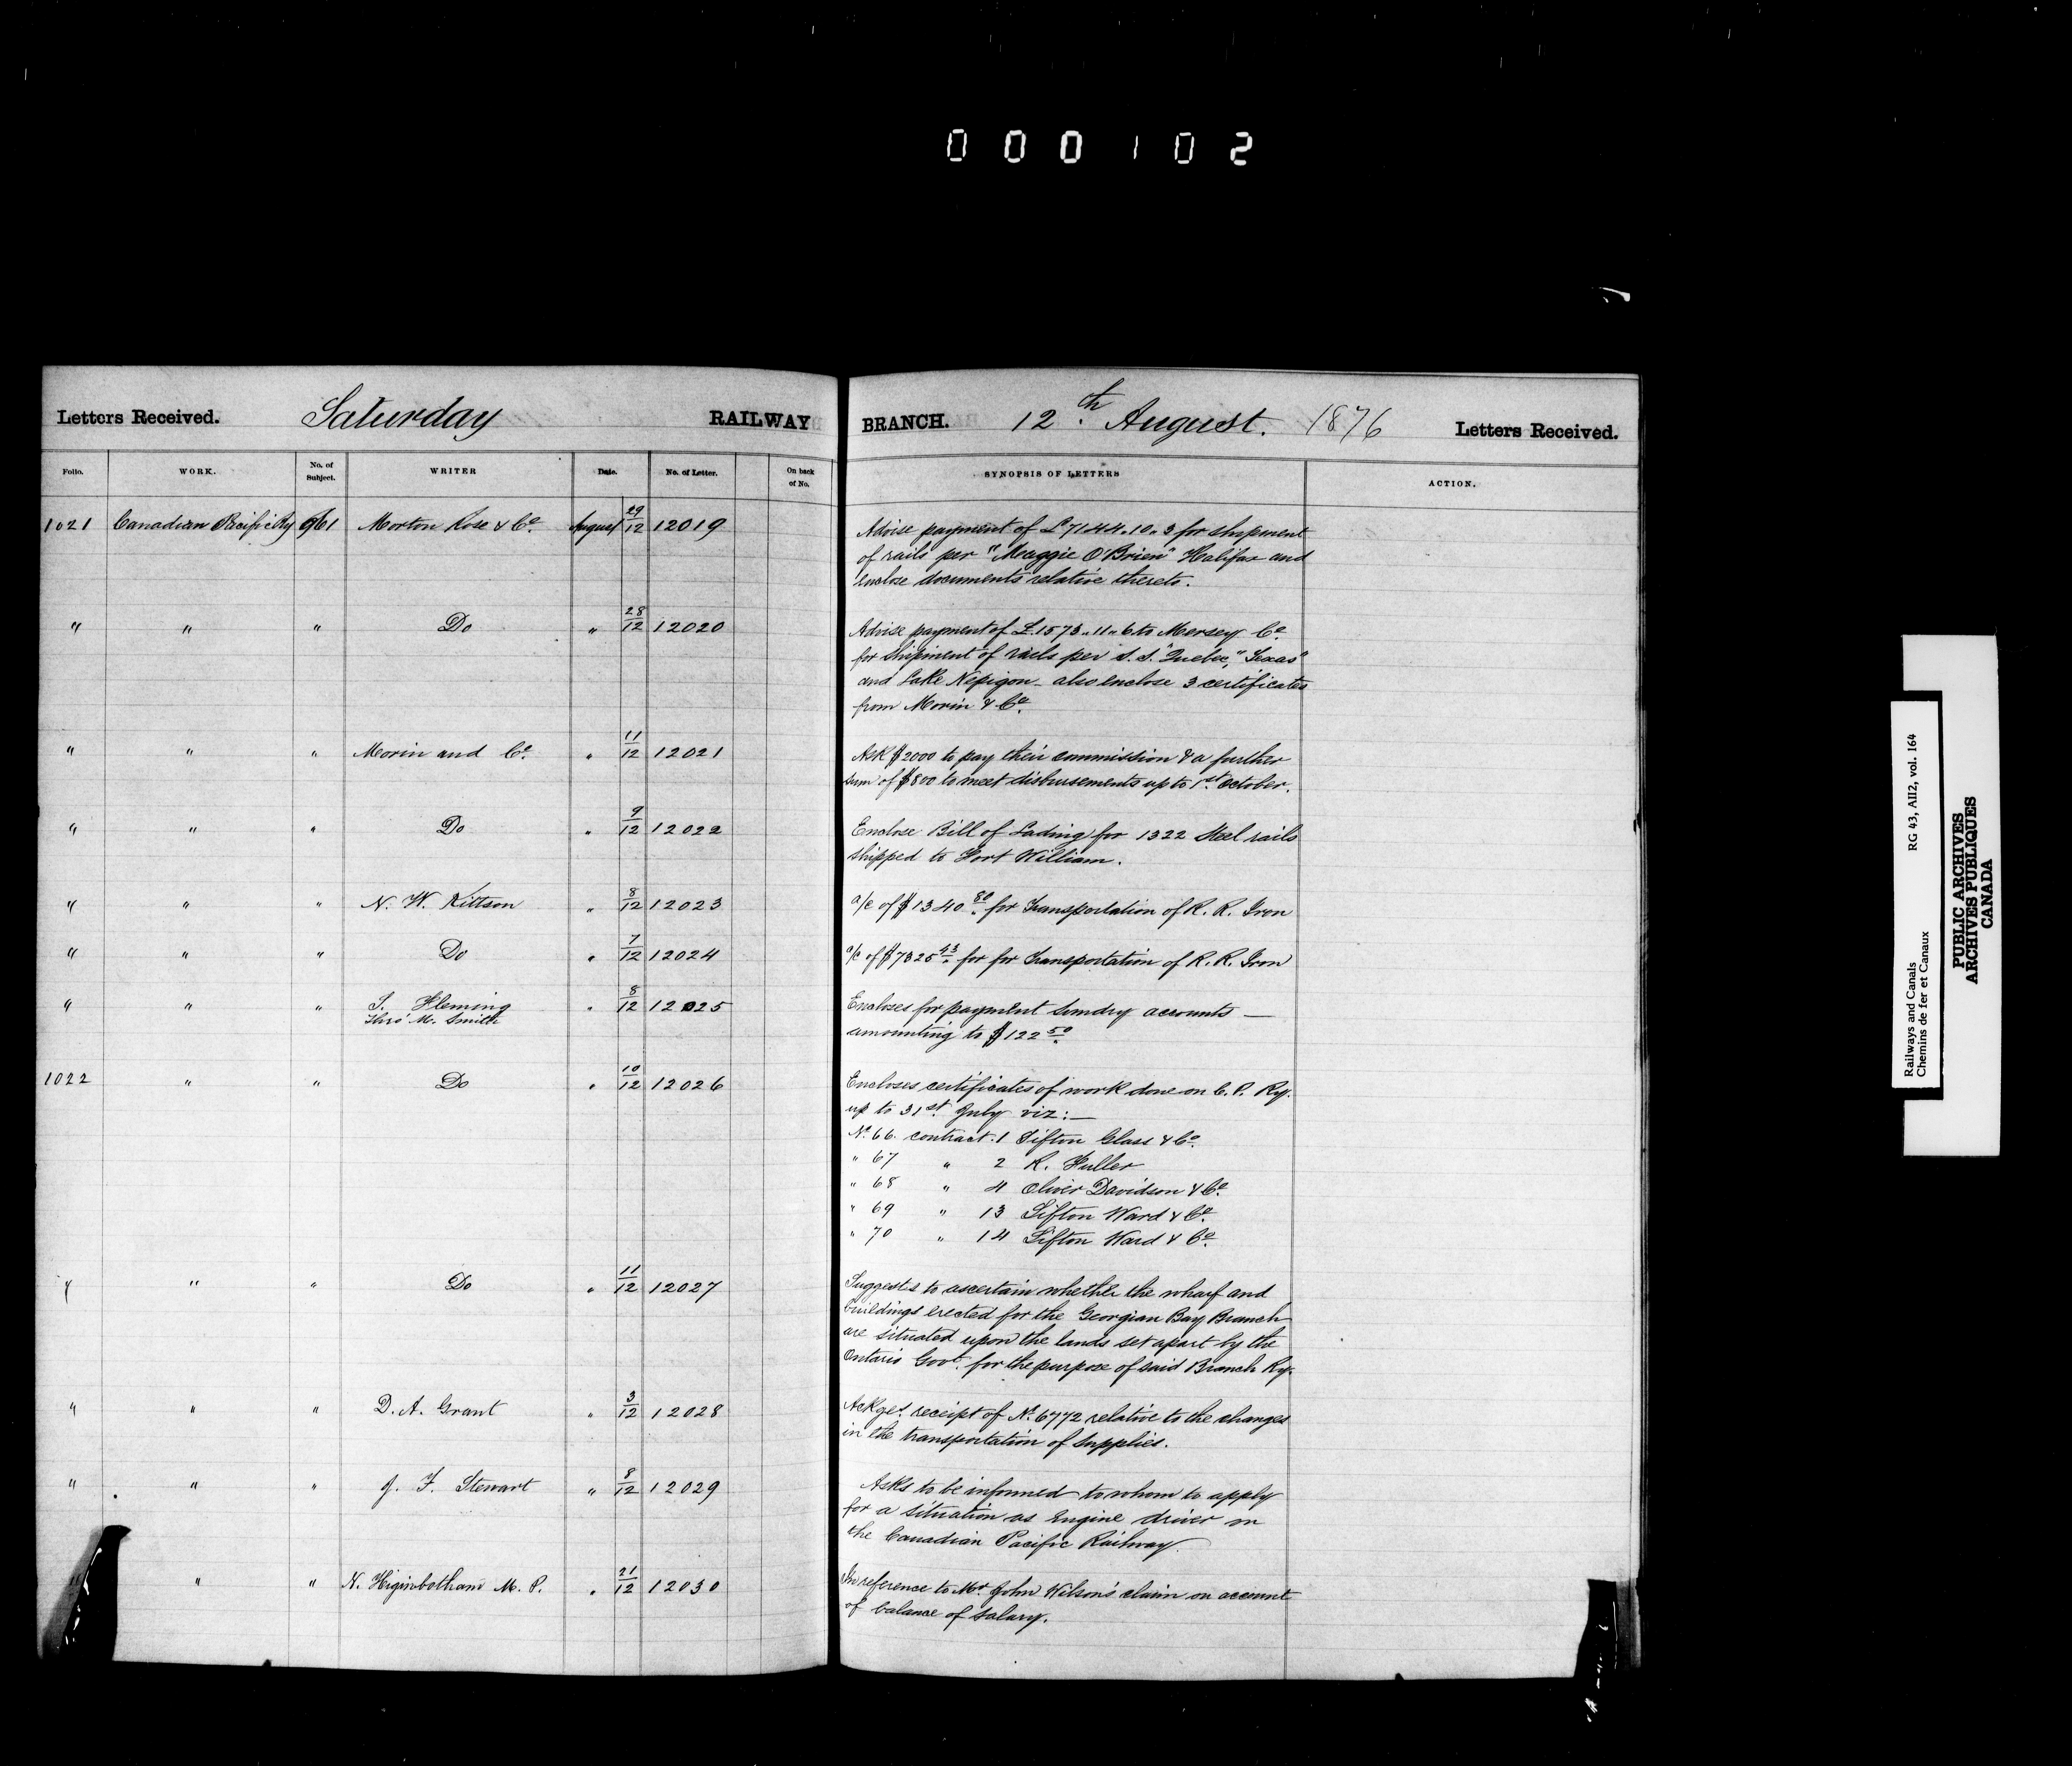 000102
Letters Received. Saturday RAILWAY BRANCH. 12th August. 1876 Letters Received.
Folio. WORK. No. of Subject. WRITER Date. No. of Letter. On back of No. SYNOPSIS OF LETTERS ACTION.
1021 Canadian Pacific Ry 961 Morton Rose & Co. August 29/12 12019 Advise payment of £7144.10.3 for shipment
of rails per "Maggie O'Brien" Halifax and
enclose documents relative thereto.
" " " Do " 28/12 12020 Advise payment of £.1573.11.6 to Mersey Co.
for shipment of rails per S.S. "Quebec," "Texas"
and Lake Nepigon - also enclose 3 certificates
from Morin & Co.
" " " Morin and Co. " 11/12 12021 Ask $2000 to pay their commission & a further
sum of $800 to meet disbursements up to 1st October.
" " " Do " 9/12 12022 Enclose Bill of Lading for 1322 Steel rails
shipped to Fort William.
" " " N. W. Kittson " 8/12 12023 a/c of $1340.80 for Transportation of R. R. Iron
" " " Do " 7/12 12024 a/c of $7325.43 for for Transportation of R. R. Iron
" " " S. Fleming " 8/12 12025 Encloses for payment Sundry accounts —
Thro' M. Smith amounting to $122.50
1022 " " Do " 10/12 12026 Encloses certificates of work done on C. P. Ry.
up to 31st July viz:—
No. 66. contract. 1 Sifton Glass & Co.
" 67 " 2 R. Fuller
" 68 " 4 Oliver Davidson & Co.
" 69 " 13 Sifton Ward & Co.
" 70 " 14 Sifton Ward & Co.
" " " Do " 11/12 12027 Suggests to ascertain whether the wharf and
buildings erected for the Georgian Bay Branch
are situated upon the lands set apart by the
Ontario Govt. for the purpose of said Branch Ry.
" " " D. A. Grant " 3/12 12028 Ackges. receipt of No. 6772 relative to the changes
in the transportation of Supplies.
" " " J. F. Stewart " 8/12 12029 Asks to be informed to whom to apply
for a situation as Engine driver on
the Canadian Pacific Railway.
" " " N. Higinbotham M. P. " 21/12 12030 In reference to Mr John Wilson's claim on account
of balance of salary.
Railways and Canals RG 43, AII2, vol. 164
Chemins de fer et Canaux
PUBLIC ARCHIVES
ARCHIVES PUBLIQUES
CANADA